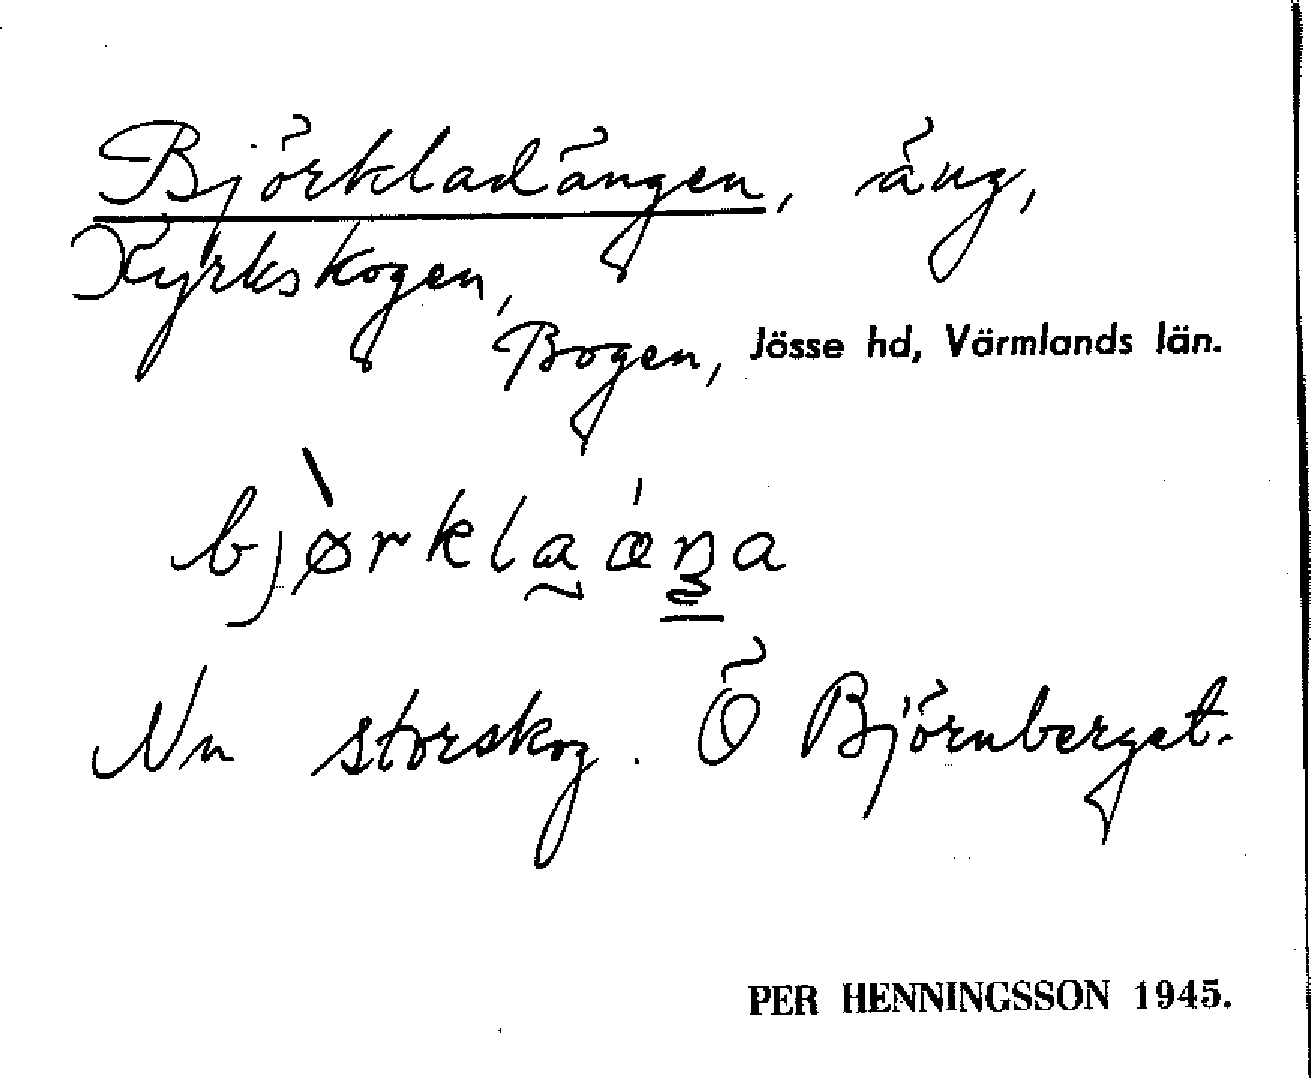 Björkladängen, äng,
Kyrkskogen,
Bogen, Jösse hd, Värmlands län.
bjø̀rkla̰ǽṉa
Nu storskog. Ö Björnberget.
PER HENNINGSSON 1945.